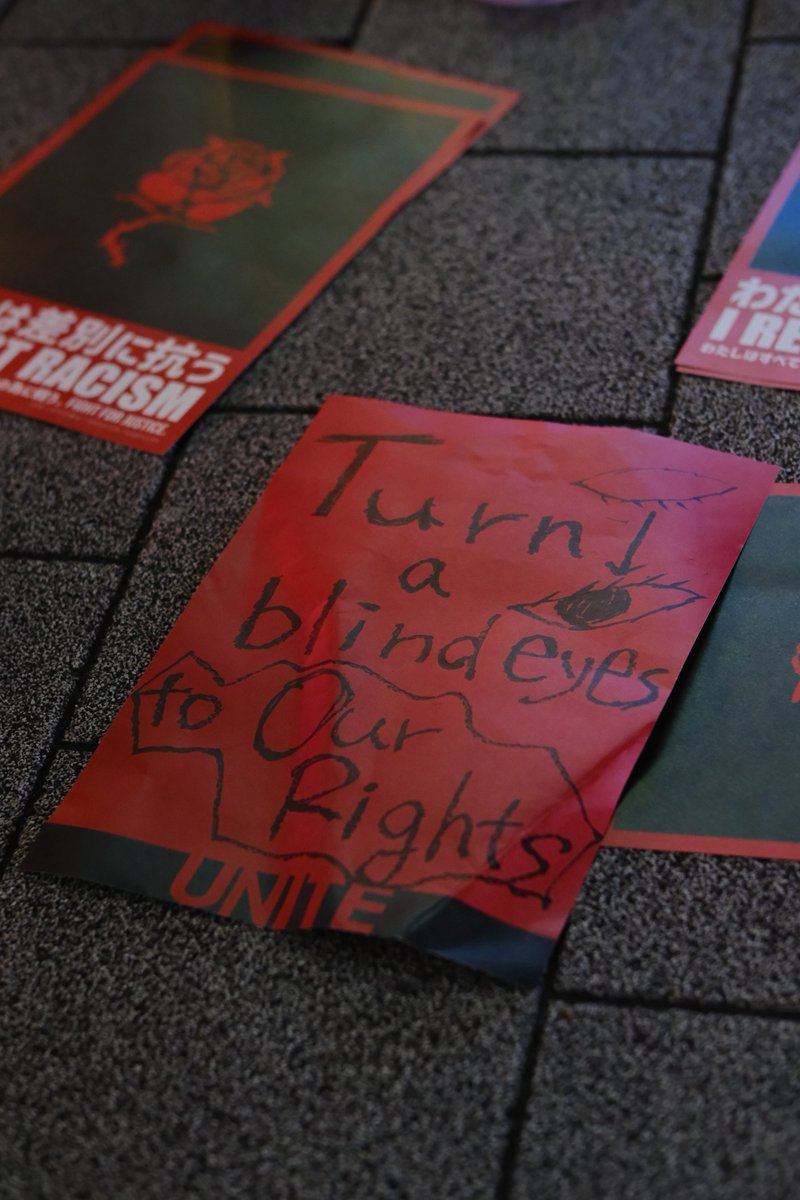 は差別に抗う
T RACISM
FIGHT FOR JUSTICE.
わた
I RE
わたしはすべて
Turn
a
blind eyes
to Our
Rights
UNITE